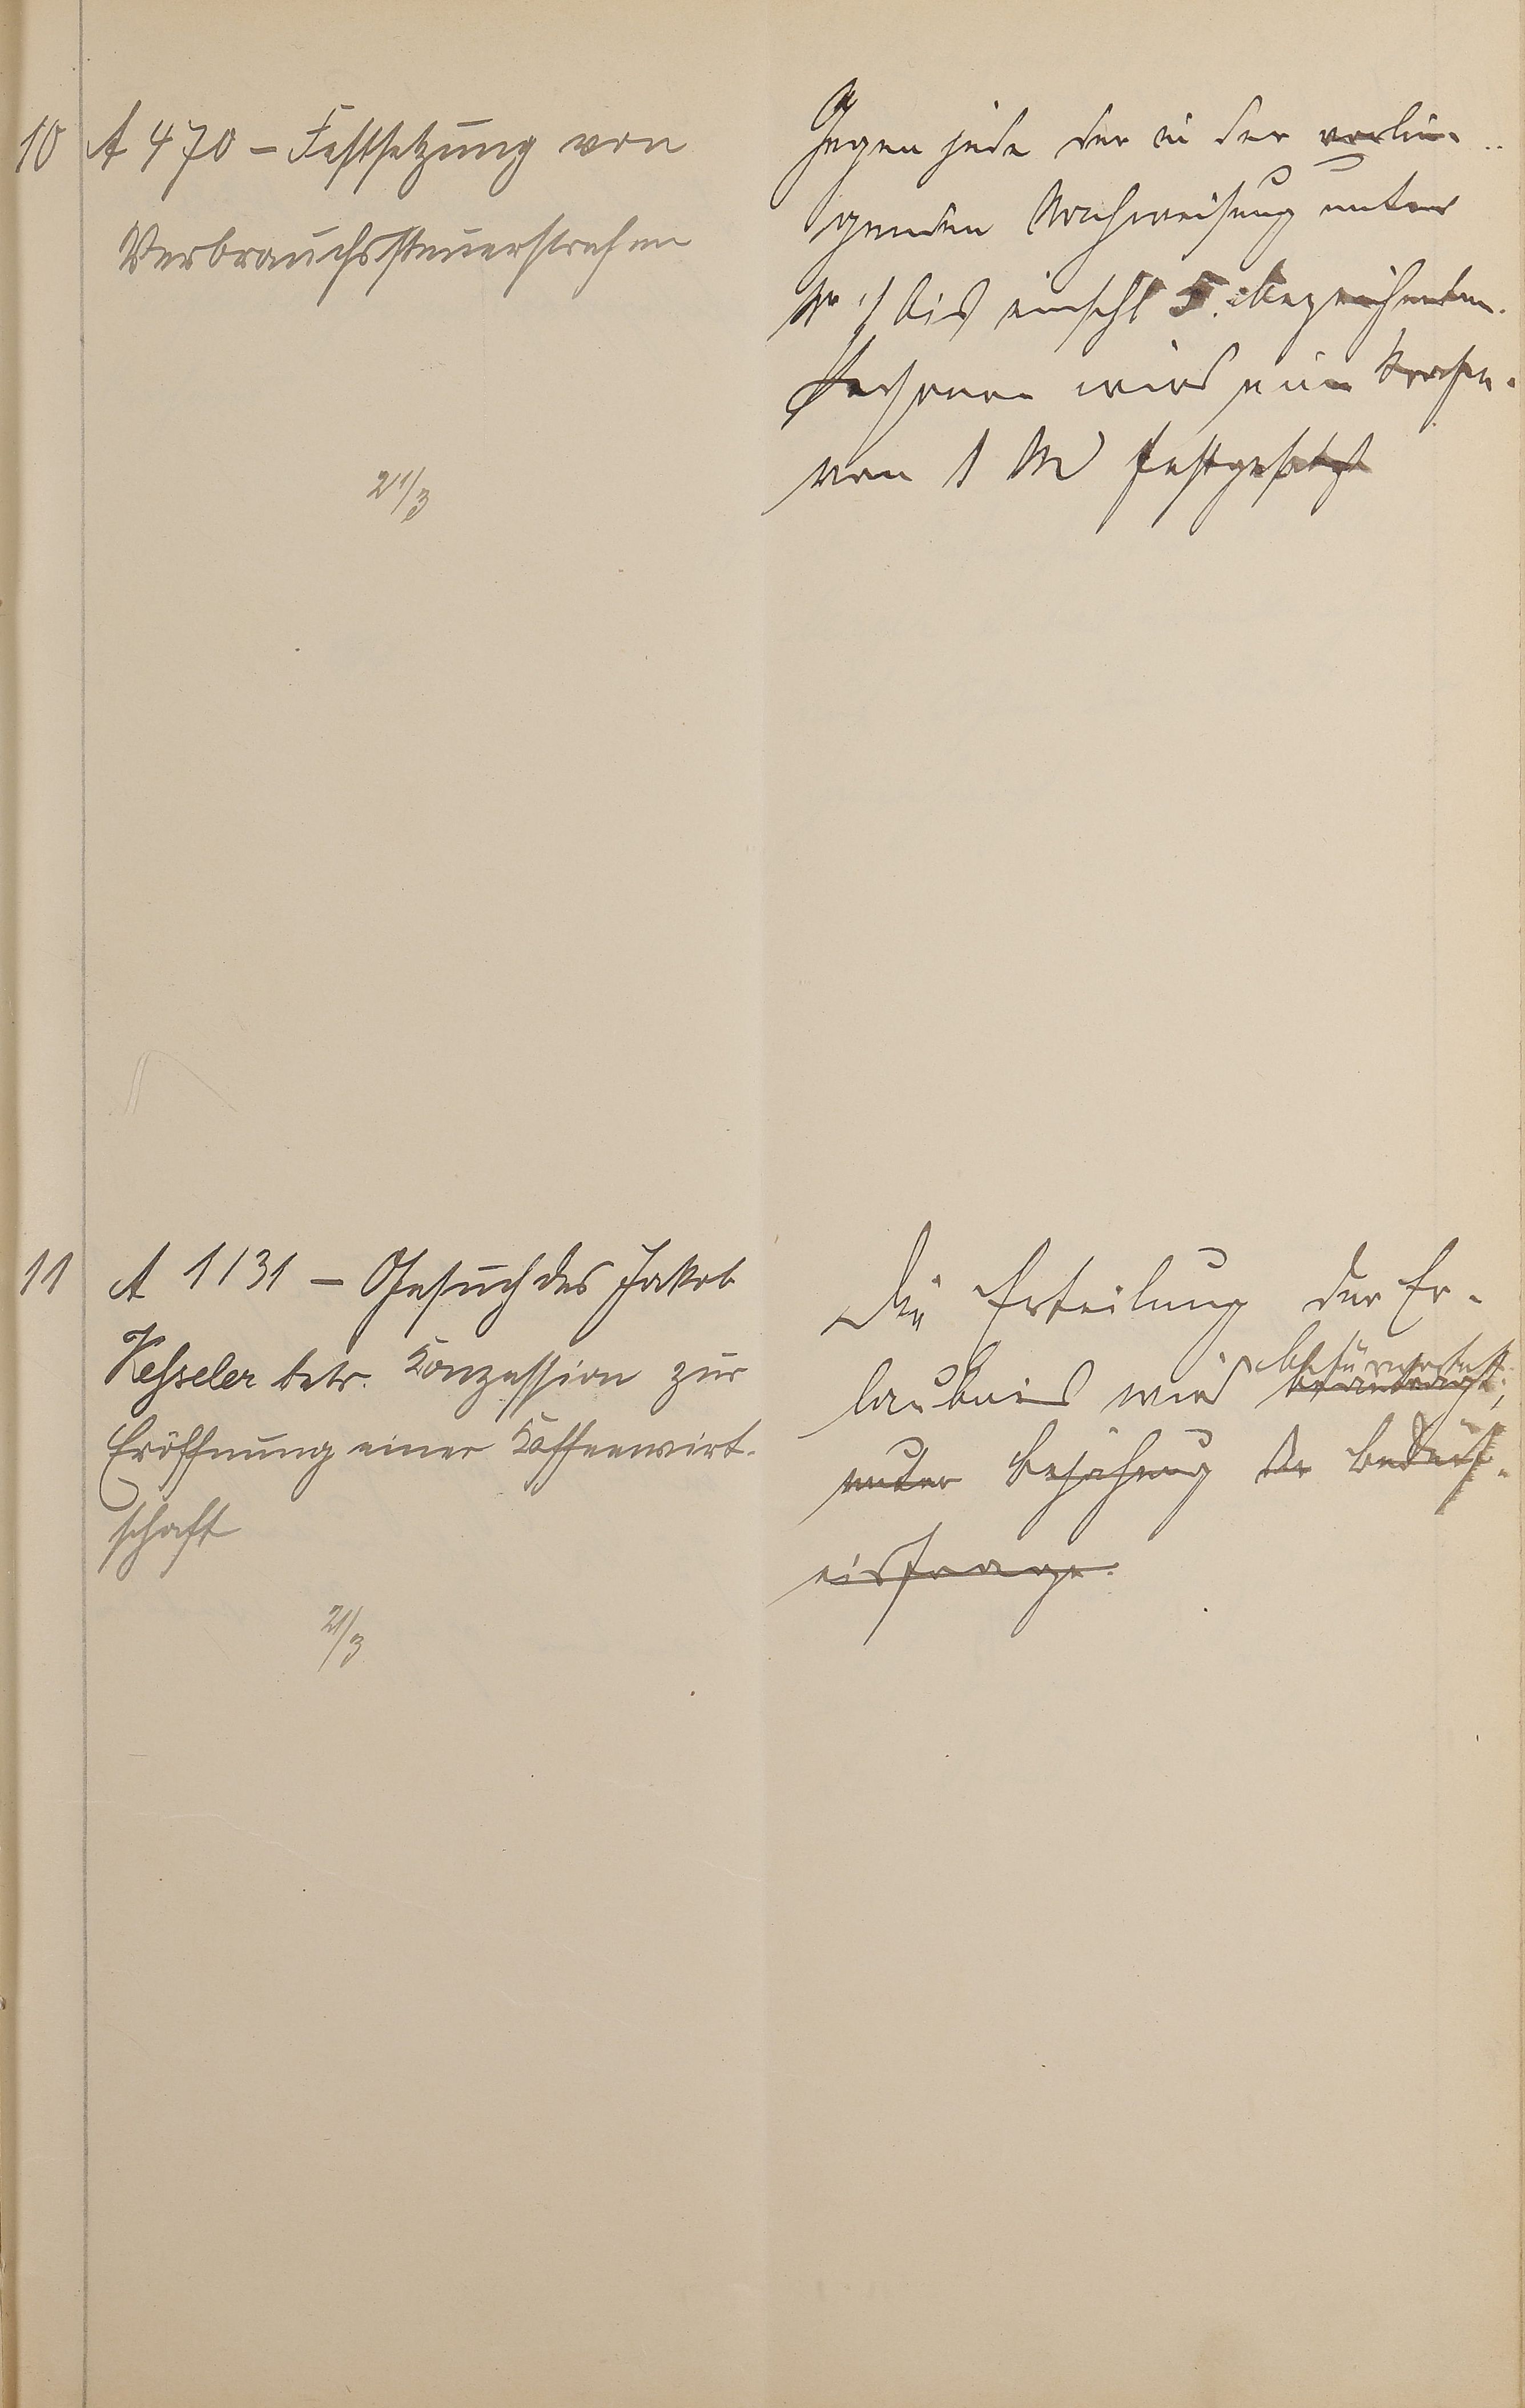 10 A 470 – Festsetzung von
Verbrauchssteuerstrafen
21/3
Gegen jede der in der vorlie-
genden Nachweisung unter
No 1 bis einschl 5 bezeichneten
Personen wird eine Strafe
von 1 M festgesetzt
11 A 1131 – Gesuch des Jakob
Kesseler betr. Konzession zur
Eröffnung einer Kaffeewirt-
schaft
21/3
Die Erteilung der Er-
befürwortet
laubnis wird beantragt,
unter Bejahung der Bedürf-
nisfrage.